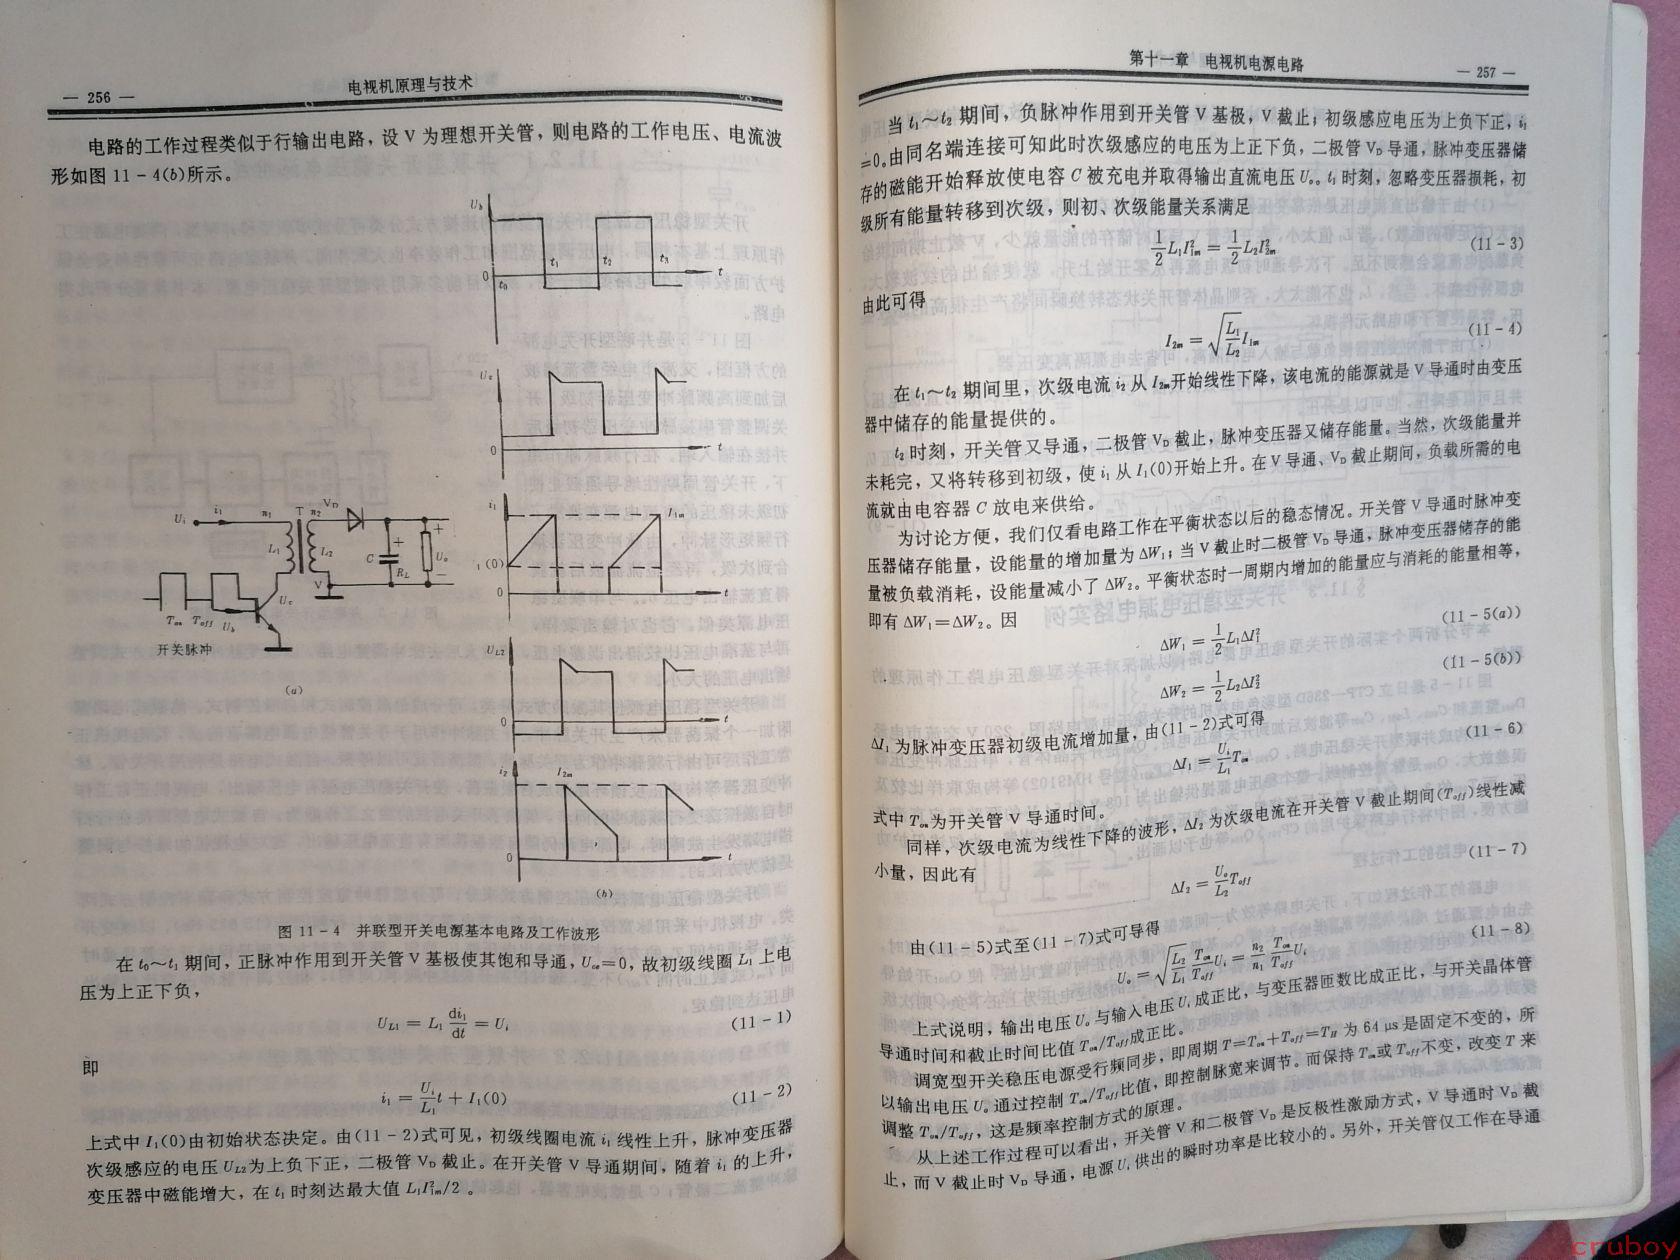 — 256 —
电视机原理与技术
电路的工作过程类似于行输出电路，设 V 为理想开关管，则电路的工作电压、电流波
形如图 11－4(b)所示。
U_b
0
t_0
t_1
t_2
t_3
t
U_c
0
t
i_1
I_1m
(0)
0
t
U_L2
0
t
i_2
I_2m
0
t
(b)
U_i
i_1
n_1
T
n_2
V_D
L_1
L_2
C
R_L
U_o
V
U_c
T_on
T_off
U_b
开关脉冲
(a)
图 11－4 并联型开关电源基本电路及工作波形
在 t_0～t_1 期间，正脉冲作用到开关管 V 基极使其饱和导通，U_ce=0，故初级线圈 L_1 上电
压为上正下负，
U_L1 = L_1 di_1/dt = U_i (11－1)
即
i_1 = U_i/L_1 t + I_1(0) (11－2)
上式中 I_1(0)由初始状态决定。由(11－2)式可见，初级线圈电流 i_1 线性上升，脉冲变压器
次级感应的电压 U_L2为上负下正，二极管 V_D 截止。在开关管 V 导通期间，随着 i_1 的上升，
变压器中磁能增大，在 t_1 时刻达最大值 L_1I²_1m/2 。
第十一章 电视机电源电路
— 257 —
当 t_1～t_2 期间，负脉冲作用到开关管 V 基极，V 截止；初级感应电压为上负下正，i_1
=0。由同名端连接可知此时次级感应的电压为上正下负，二极管 V_D 导通，脉冲变压器储
存的磁能开始释放使电容 C 被充电并取得输出直流电压 U_o。t_1 时刻，忽略变压器损耗，初
级所有能量转移到次级，则初、次级能量关系满足
1/2 L_1I²_1m = 1/2 L_2I²_2m (11－3)
由此可得
I_2m = √(L_1/L_2) I_1m (11－4)
在 t_1～t_2 期间里，次级电流 i_2 从 I_2m开始线性下降，该电流的能源就是 V 导通时由变压
器中储存的能量提供的。
t_2 时刻，开关管又导通，二极管 V_D 截止，脉冲变压器又储存能量。当然，次级能量并
未耗完，又将转移到初级，使 i_1 从 I_1(0)开始上升。在 V 导通、V_D 截止期间，负载所需的电
流就由电容器 C 放电来供给。
为讨论方便，我们仅看电路工作在平衡状态以后的稳态情况。开关管 V 导通时脉冲变
压器储存能量，设能量的增加量为 ΔW_1；当 V 截止时二极管 V_D 导通，脉冲变压器储存的能
量被负载消耗，设能量减小了 ΔW_2。平衡状态时一周期内增加的能量应与消耗的能量相等，
即有 ΔW_1=ΔW_2。因
ΔW_1 = 1/2 L_1ΔI²_1 (11－5(a))
ΔW_2 = 1/2 L_2ΔI²_2 (11－5(b))
ΔI_1 为脉冲变压器初级电流增加量，由(11－2)式可得
ΔI_1 = U_i/L_1 T_on (11－6)
式中 T_on为开关管 V 导通时间。
同样，次级电流为线性下降的波形，ΔI_2 为次级电流在开关管 V 截止期间(T_off)线性减
小量，因此有
ΔI_2 = U_o/L_2 T_off (11－7)
由(11－5)式至(11－7)式可导得
U_o = √(L_2/L_1) T_on/T_off U_i = n_2/n_1 T_on/T_off U_i (11－8)
上式说明，输出电压 U_o 与输入电压 U_i 成正比，与变压器匝数比成正比，与开关晶体管
导通时间和截止时间比值 T_on/T_off成正比。
调宽型开关稳压电源受行频同步，即周期 T=T_on+T_off=T_H 为 64 μs 是固定不变的，所
以输出电压 U_o 通过控制 T_on/T_off比值，即控制脉宽来调节。而保持 T_on或 T_off不变，改变 T 来
调整 T_on/T_off，这是频率控制方式的原理。
从上述工作过程可以看出，开关管 V 和二极管 V_D 是反极性激励方式，V 导通时 V_D 截
止，而 V 截止时 V_D 导通，电源 U_i 供出的瞬时功率是比较小的。另外，开关管仅工作在导通
cruboy